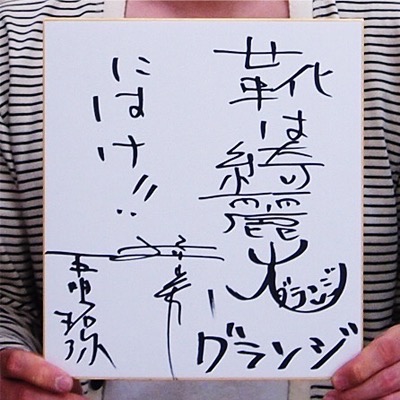 靴は綺麗
にはけ!!
大
グランジ
グランジ